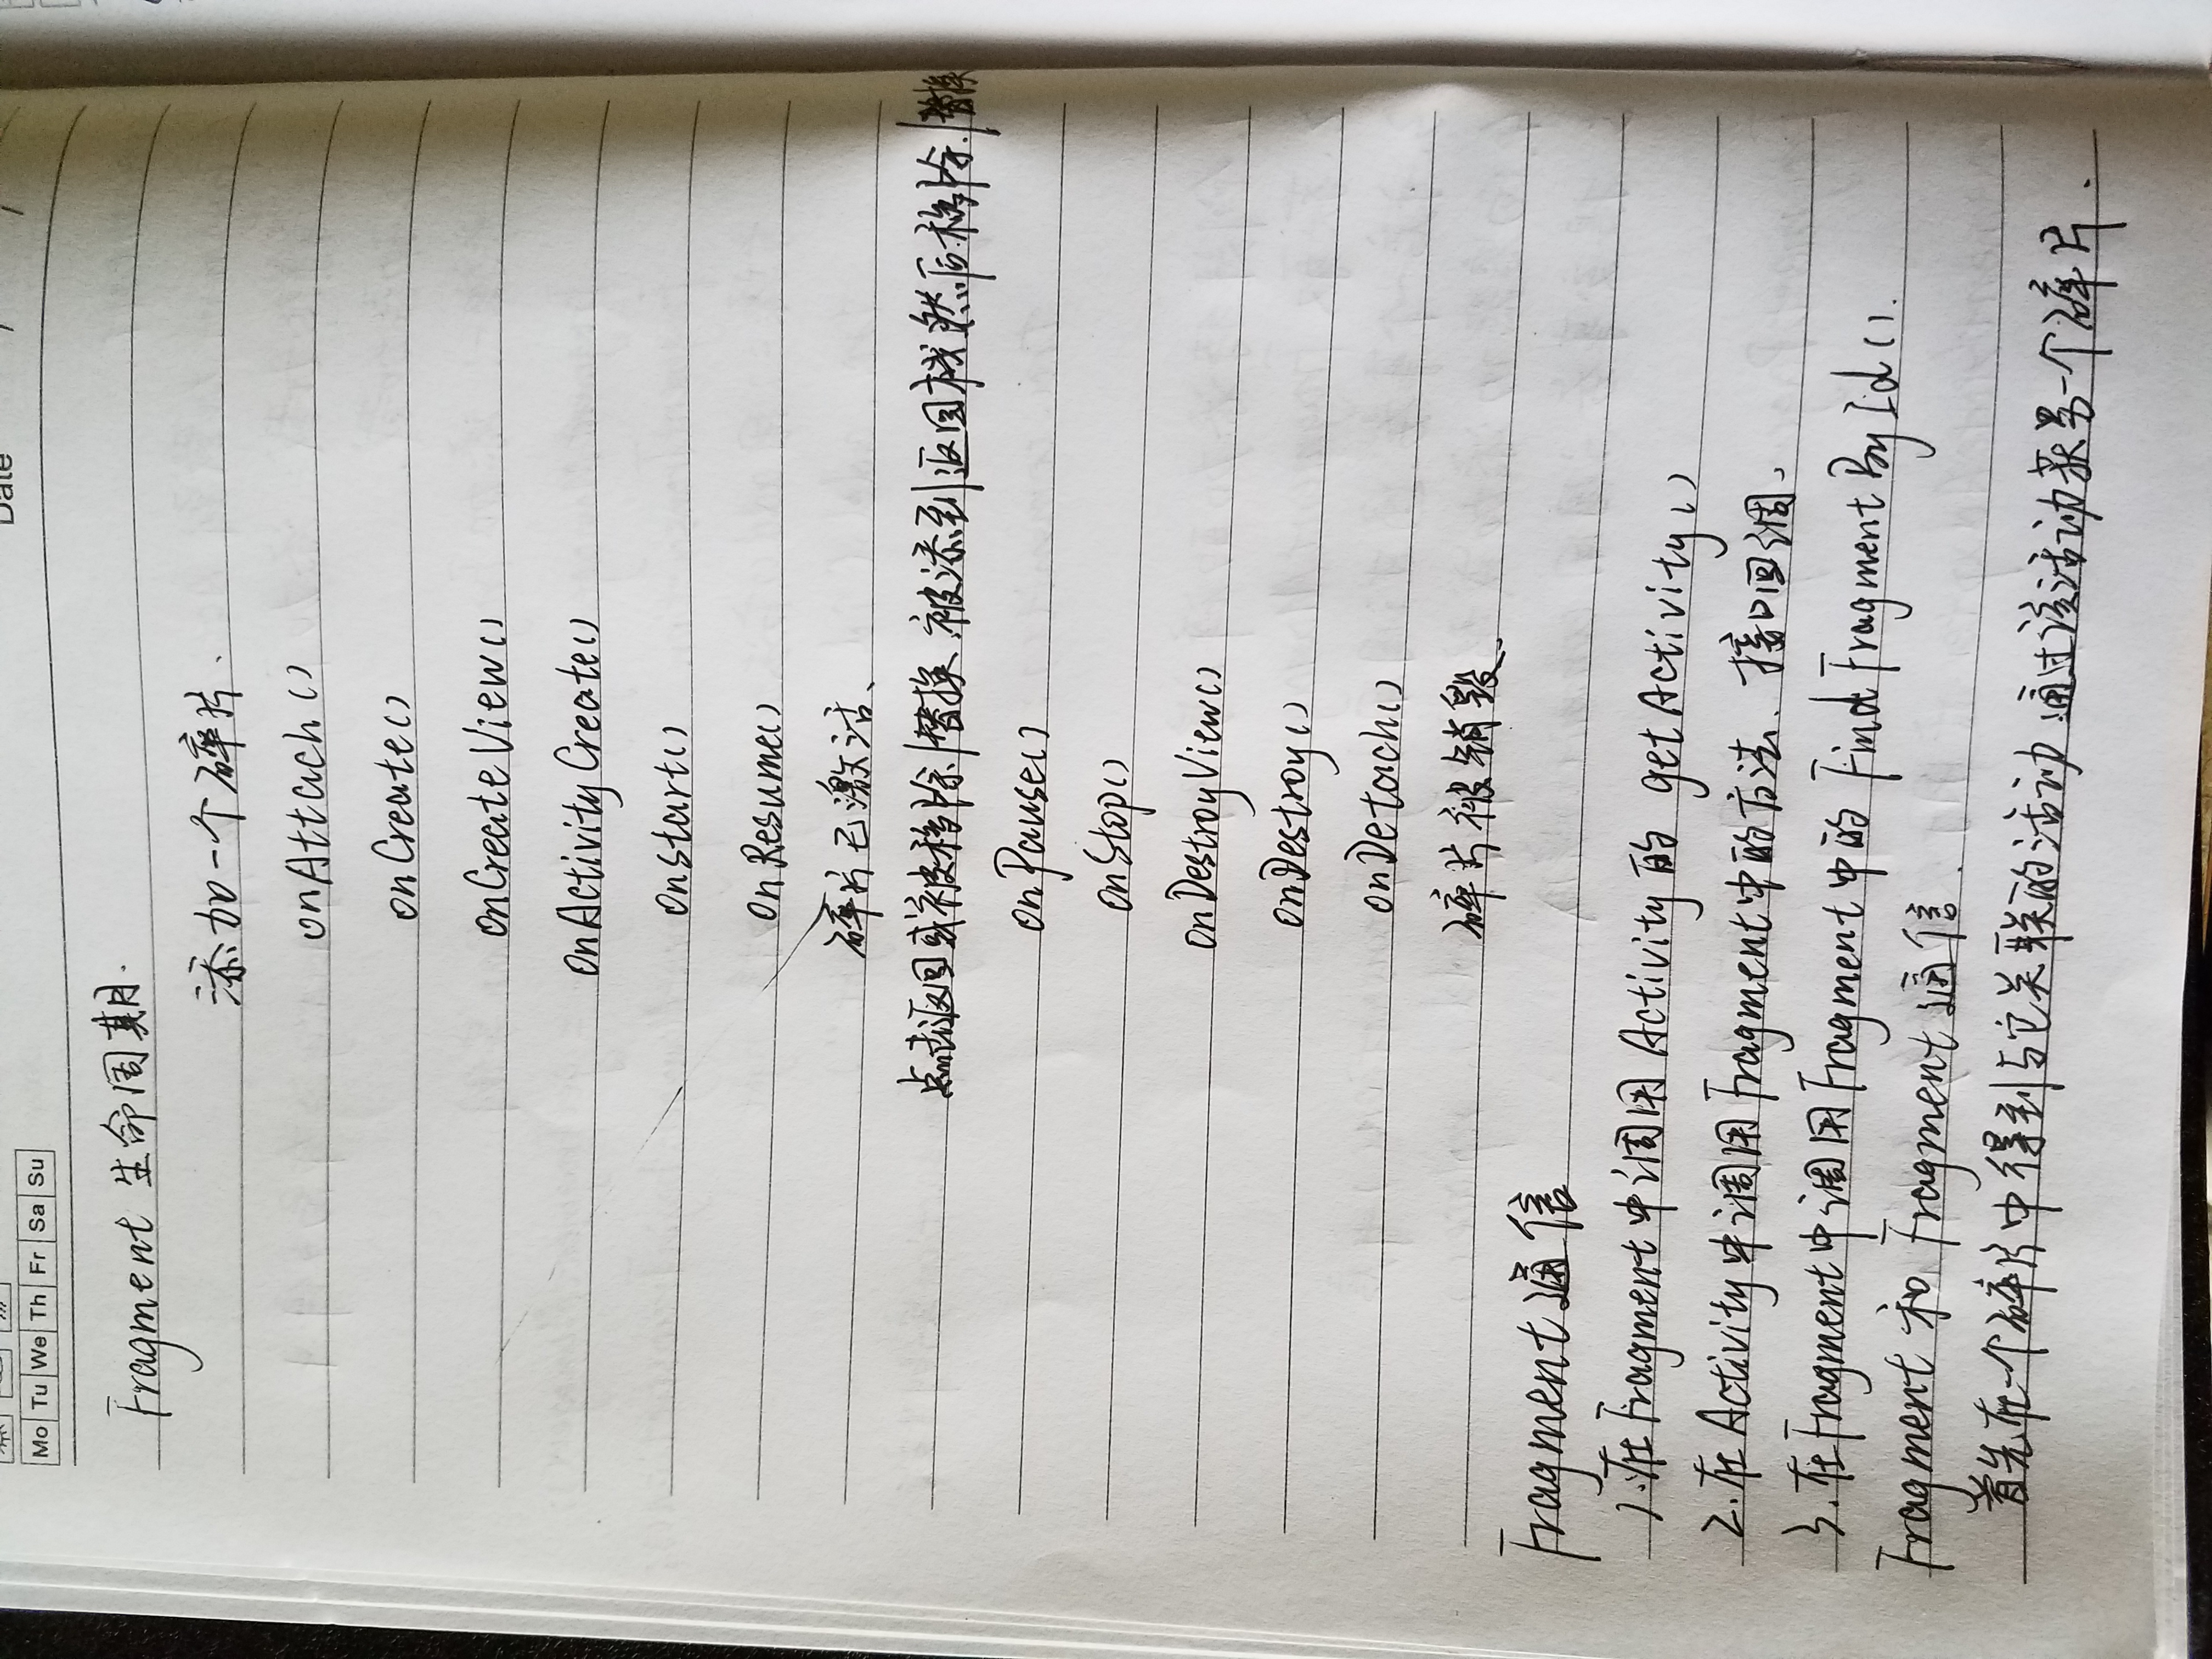 Date / /
Mo Tu We Th Fr Sa Su
Fragment 生命周期.
添加一个碎片.
onAttach()
onCreate()
onCreateView()
onActivityCreate()
onstart()
onResume()
碎片已激活、
点击返回或被移除/替换 被添到返回栈然后移除/替换
onPause()
onStop()
onDestroyView()
onDestroy()
onDetach()
碎片被销毁、
Fragment通信
1.在Fragment中调用Activity的 getActivity()
2.在Activity中调用Fragment中的方法、接口回调、
3.在Fragment中调用Fragment中的 FindFragmentById().
Fragment 和 Fragment 通信.
首先在一个碎片中得到与它关联的活动 通过该活动获另一个碎片.